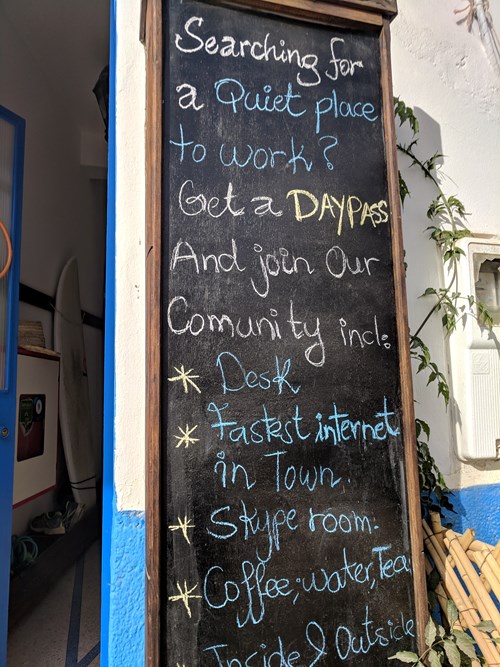 Searching for
a Quiet place
to work?
Get a DAYPASS
And join Our
Comunity incl:
* Desk
* Fastest internet
in Town.
* Skype room.
* Coffee, water, Tea
* Inside & Outside